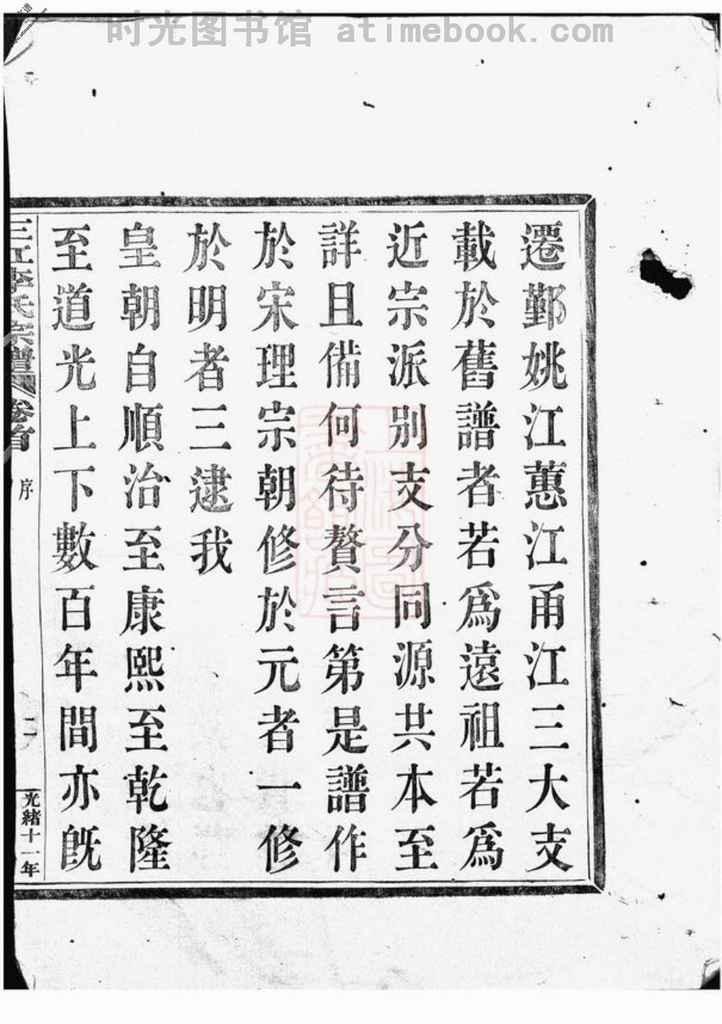 时光图书馆 atimebook.com
遷鄞姚江蕙江甬江三大支
載於舊譜者若爲遠祖若爲
近宗派別支分同源共本至
詳且備何待贅言第是譜作
於宋理宗朝修於元者一修
於明者三逮我
皇朝自順治至康熙至乾隆
至道光上下數百年間亦旣
三江李氏宗譜 卷首 序 二 光緒十一年